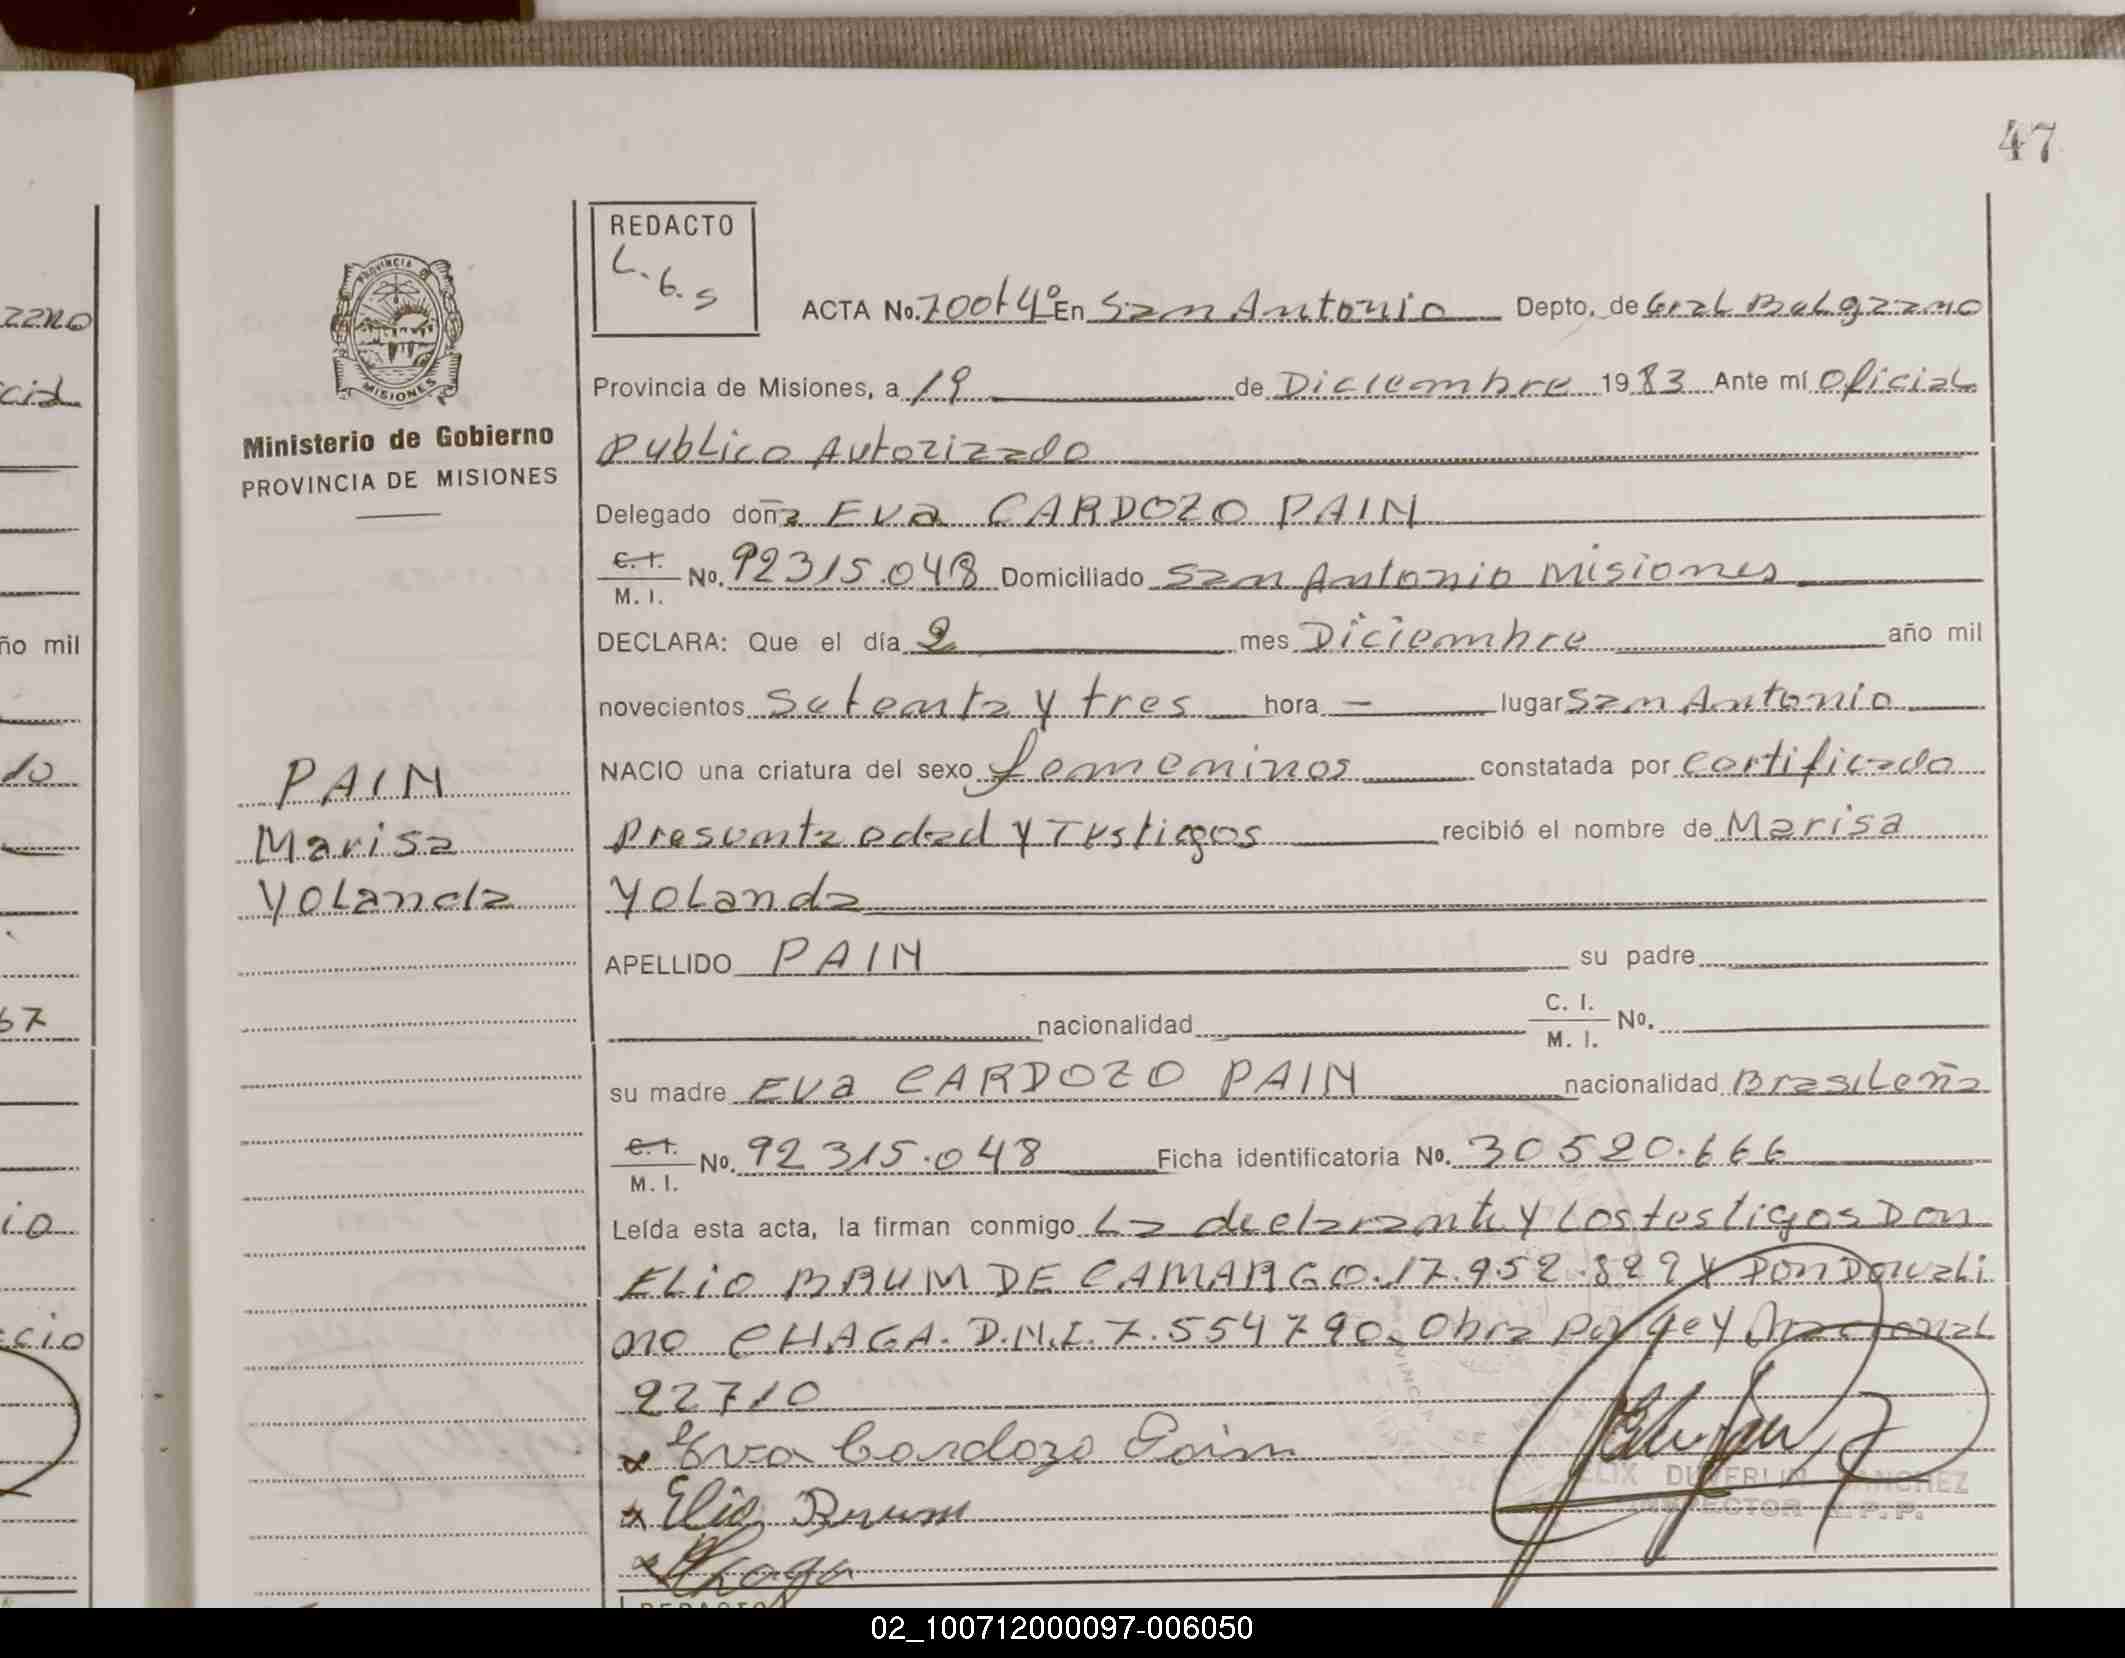 47
REDACTO
L.G.S
ACTA No. 700T4º En San Antonio Depto. de Gral Belgrano
Provincia de Misiones, a 19 de Diciembre 1983 Ante mí Oficial
Publico Autorizado
PROVINCIA DE
MISIONES
Ministerio de Gobierno
PROVINCIA DE MISIONES
Delegado doña Eva CARDOZO PAIN
C. I. / M. I. No. 92315.048 Domiciliado San Antonio Misiones
DECLARA: Que el día 2 mes Diciembre año mil
novecientos Setenta y tres hora — lugar San Antonio
NACIO una criatura del sexo femeninos constatada por certificado
Presunta edad y Testigos recibió el nombre de Marisa
Yolanda
PAIN
Marisa
Yolanda
APELLIDO PAIN su padre
nacionalidad C. I. / M. I. No.
su madre Eva CARDOZO PAIN nacionalidad Brasileña
C. I. / M. I. No. 92315.048 Ficha identificatoria No. 30520.666
Leída esta acta, la firman conmigo La declarante y Los testigos Don
ELIO BRUM DE CAMARGO. 17.952.829 y Don Dorvali
no CHAGA. D.N.I. 7.554790. Obra por Ley Nacional
22710
x Eva Cardozo Pain
x Elio Brum
x Chaga
FELIX DUVERLIN SANCHEZ
INSPECTOR R.P.P.
REDACTO
zano
cial
ño mil
do
67
io
cio
02_100712000097-006050